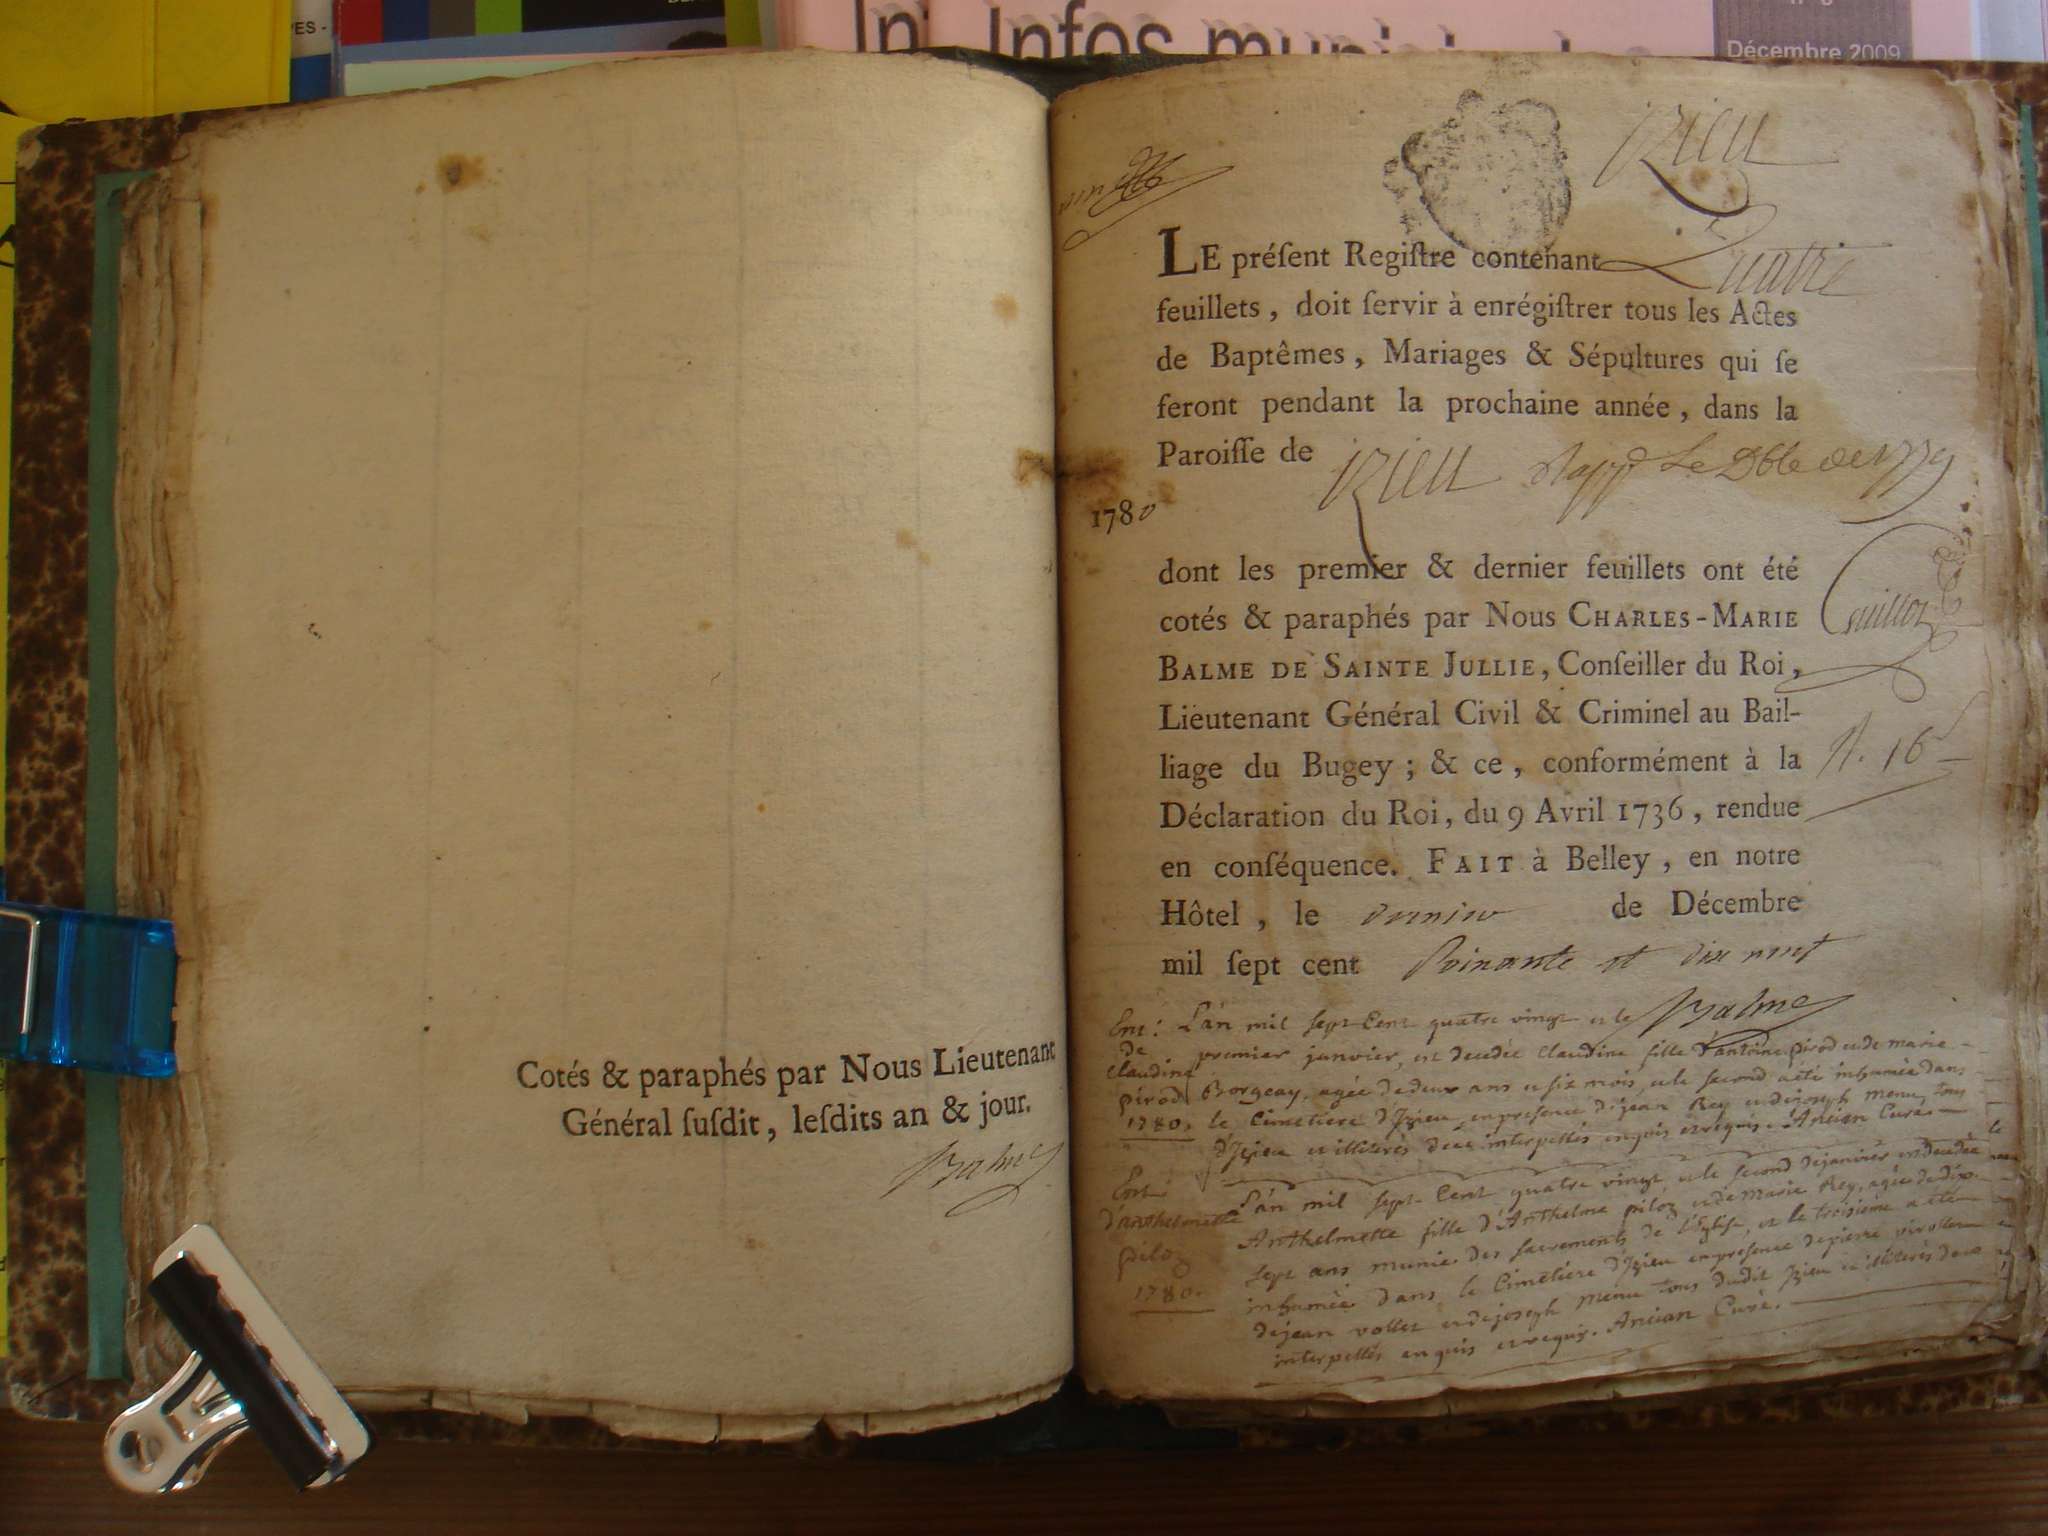 PES -
Infos municipales
Décembre 2009
Cotés & paraphés par Nous Lieutenant
Général ſuſdit, leſdits an & jour.
Balme
Izieu
LE préſent Regiſtre contenant Quatre
feuillets, doit ſervir à enrégiſtrer tous les Actes
de Baptêmes, Mariages & Sépultures qui ſe
feront pendant la prochaine année, dans la
Paroiſſe de Izieu Rapp.é Le Dble de 1779
1780
dont les premier & dernier feuillets ont été
cotés & paraphés par Nous CHARLES-MARIE
BALME DE SAINTE JULLIE, Conſeiller du Roi,
Lieutenant Général Civil & Criminel au Bail-
liage du Bugey ; & ce, conformément à la
Déclaration du Roi, du 9 Avril 1736, rendue
en conſéquence. FAIT à Belley, en notre
Hôtel, le dernier de Décembre
mil ſept cent Soixante et dix neuf
Balme
Guillot
16
Ent:
de
Claudine
pirod
1780.
L'an mil sept Cent quatre vingt et le
premier janvier, est decedée Claudine fille d'antoine pirod et de marie
Borgeay, agée de deux ans et six mois, et le second a été inhumée dans
le Cimetiere d'Izieu, en presence de jean Rey et de joseph menu tous
d'Izieu et illiterés de ce interpellés enquis et requis. Ancian Curé.
Ent:
d'anthelmette
piloz
1780.
L'an mil sept Cent quatre vingt et le second de janvier est decedée
Anthelmette fille d'Anthelme piloz et de Marie Rey, agée de dix
sept ans munie des sacrements de l'Eglise, et le troisieme a été
inhumée dans le Cimetiere d'Izieu en presence de pierre
de jean vollet et de joseph menu tous dudit Izieu et illiterés de ce
interpellés enquis et requis. Ancian Curé.